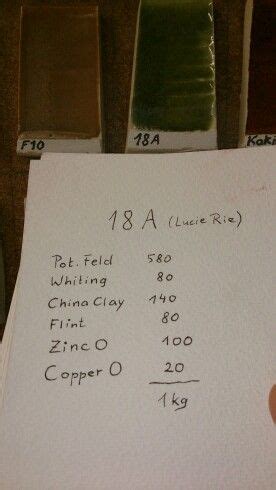 F10
18A
Kaki
18 A (Lucie Rie)
Pot. Feld 580
Whiting 80
China Clay 140
Flint 80
Zinc O 100
Copper O 20
1 kg